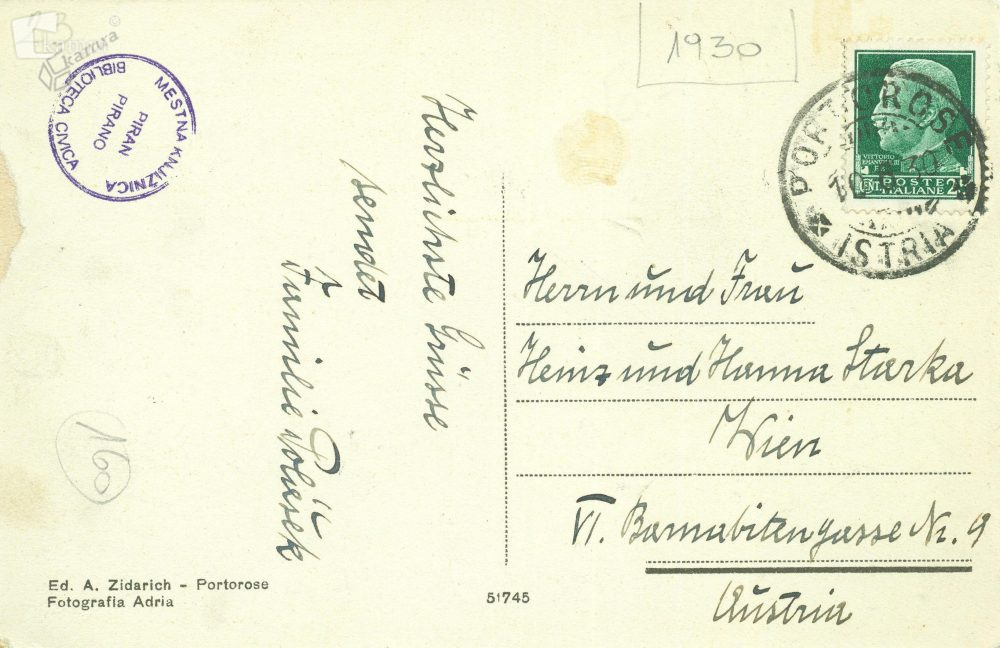 kamra
©
MESTNA KNJIŽNICA
PIRAN
PIRANO
BIBLIOTECA CIVICA
1930
VITTORIO
EMANUELE III
POSTE
ITALIANE
PORTOROSE
30
ISTRIA
Herzlichste Grüsse
sendet
Familie
Herrn und Frau
Heinz und Hanna Starka
Wien
VI. Barnabitengasse Nr. 9
Austria
160
Ed. A. Zidarich - Portorose
Fotografia Adria
51745